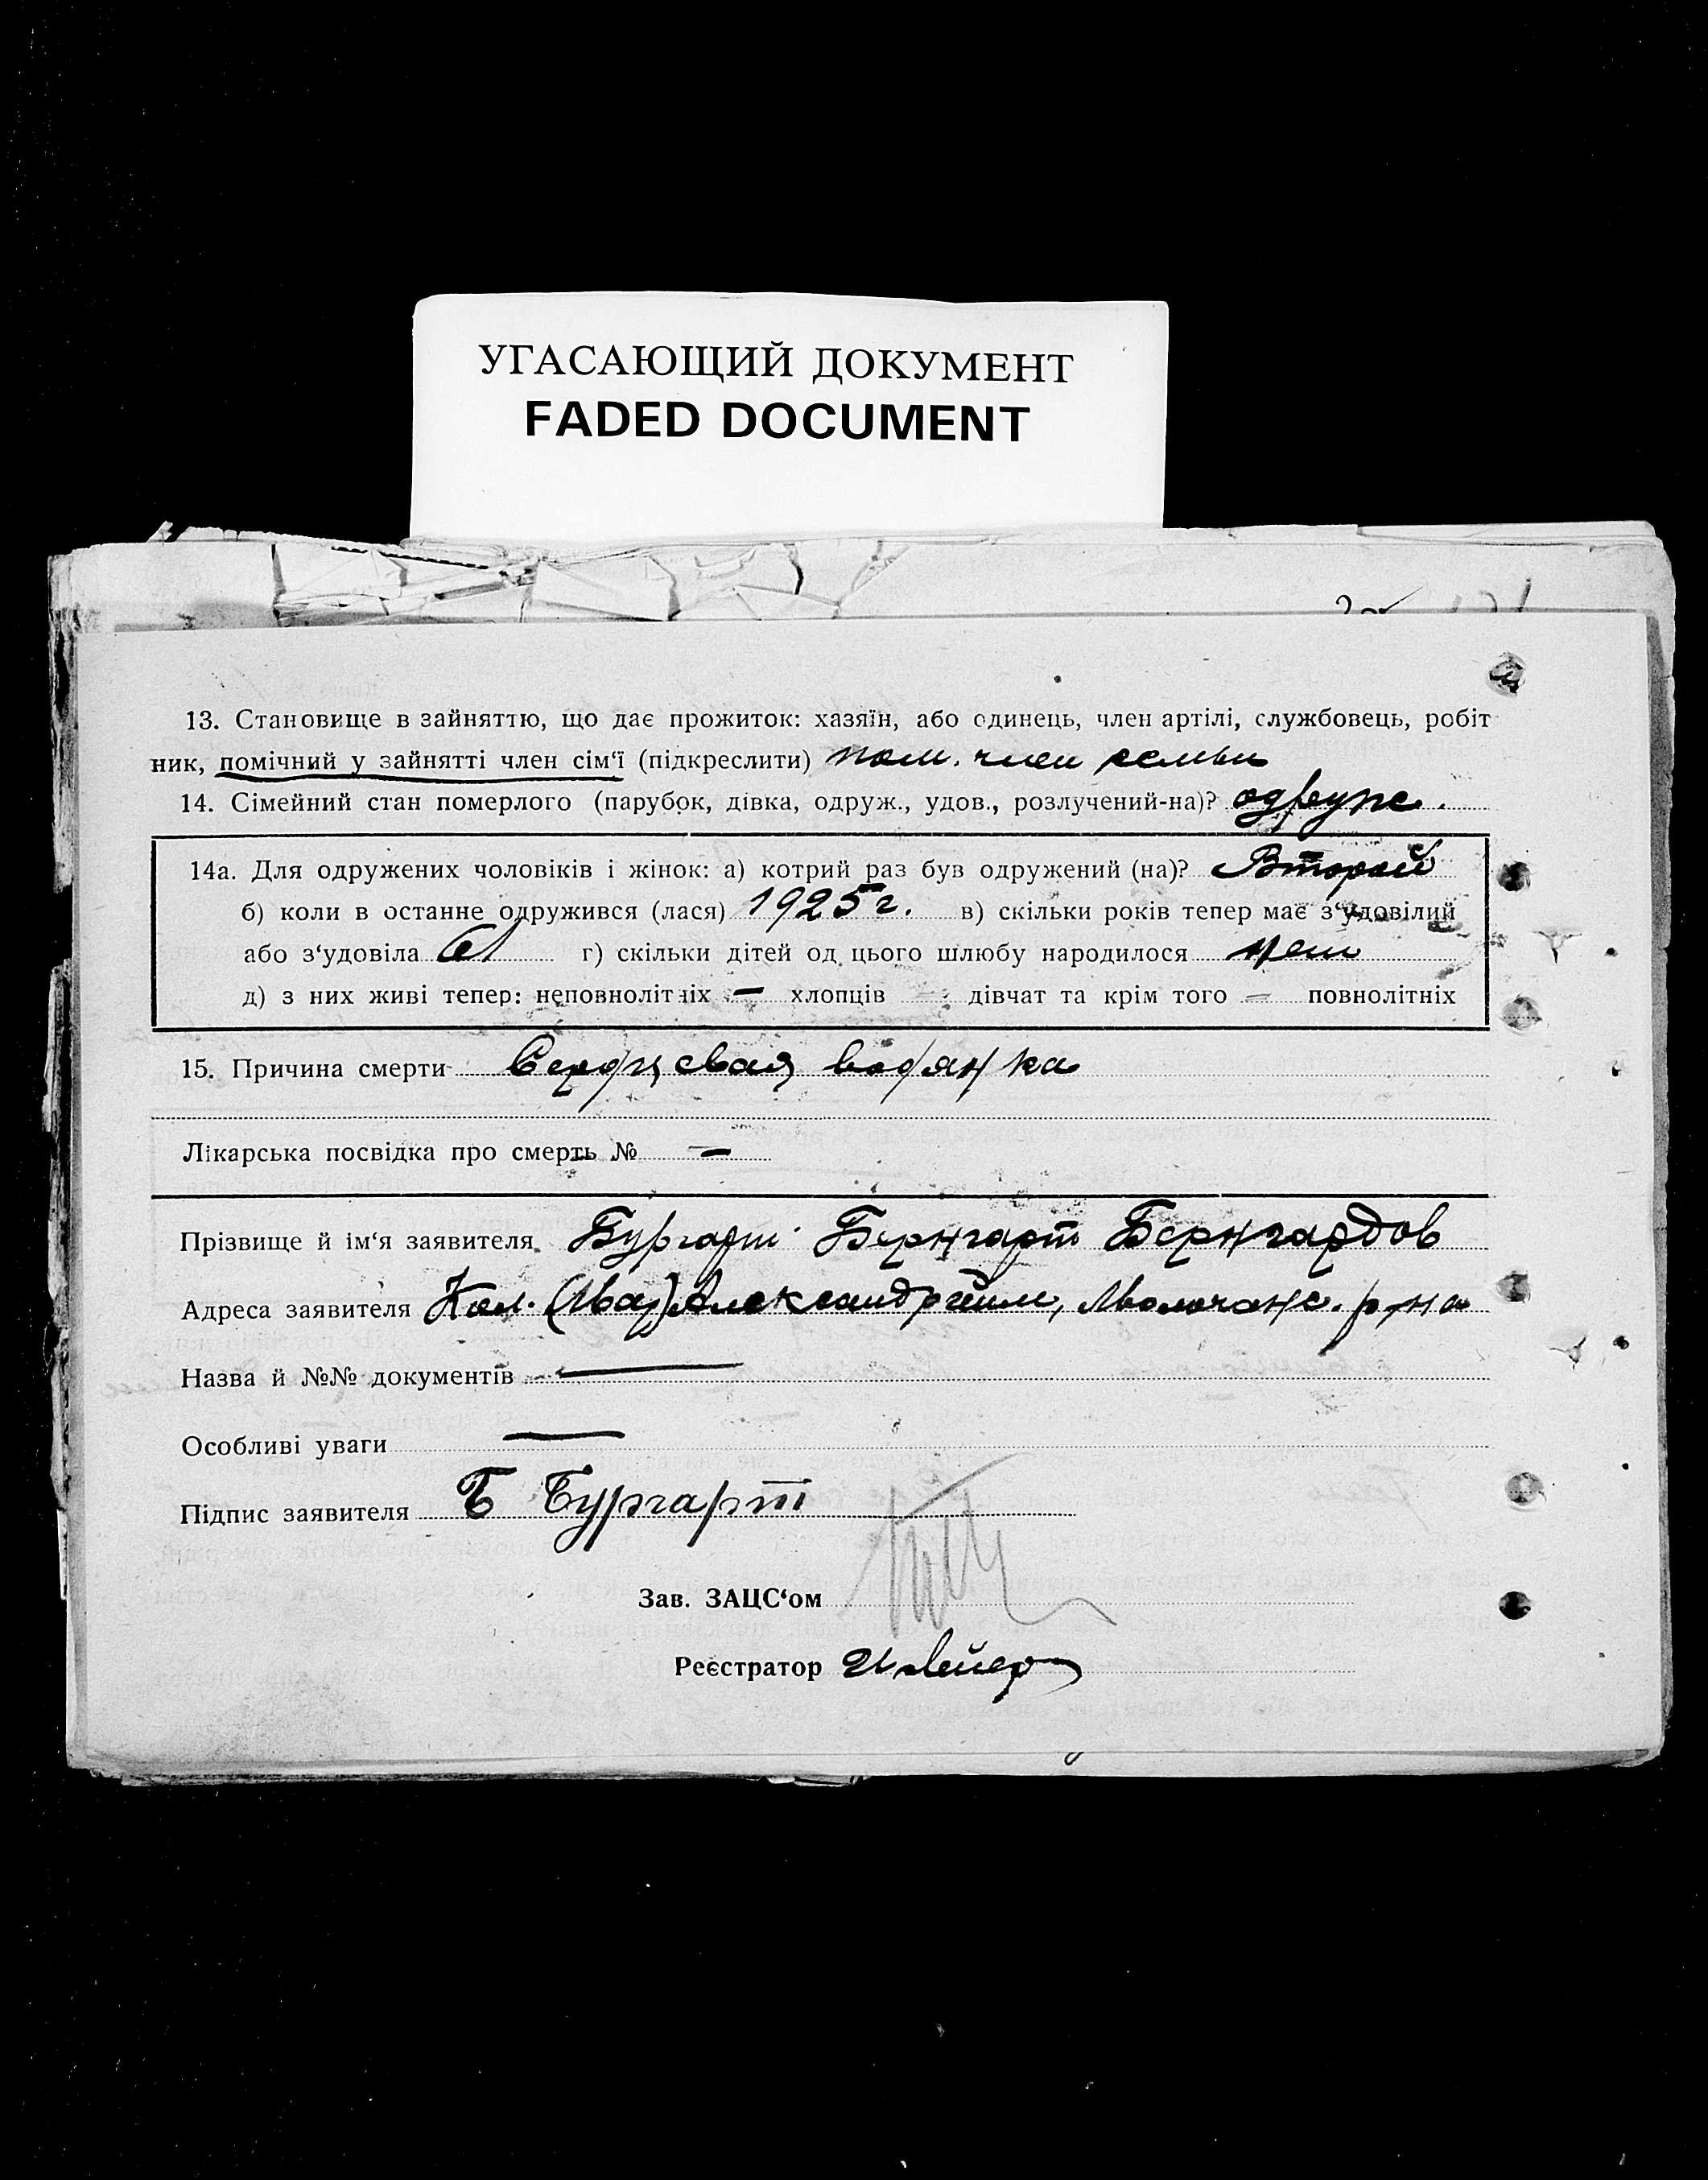 УГАСАЮЩИЙ ДОКУМЕНТ
FADED DOCUMENT
13. Становище в зайняттю, що дає прожиток: хазяїн, або одинець, член артілі, службовець, робіт
ник, помічний у зайнятті член сім'ї (підкреслити) пом. член семьи
14. Сімейний стан померлого (парубок, дівка, одруж., удов., розлучений-на)? одруже.
14а. Для одружених чоловіків і жінок: а) котрий раз був одружений (на)? Второй
б) коли в останнє одружився (лася) 1925 г. в) скільки років тепер має з'удовілий
або з'удовіла 61 г) скільки дітей од цього шлюбу народилося нет
д) з них живі тепер: неповнолітніх — хлопців — дівчат та крім того — повнолітніх
15. Причина смерти Сердцевая водянка
Лікарська посвідка про смерть № —
Прізвище й ім'я заявителя Бургарт Бернгарт Бернгардов
Адреса заявителя Кол. Александргейм, Молочанс. р-на
Назва й №№ документів —
Особливі уваги —
Підпис заявителя Б Бургарт
Зав. ЗАЦС'ом
Реєстратор